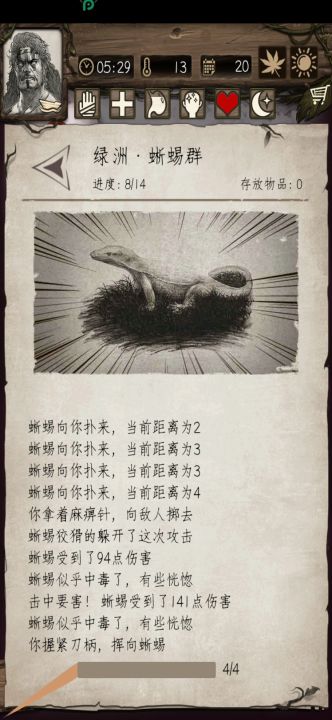 05:29
13
20
绿洲·蜥蜴群
进度: 8/14
存放物品: 0
蜥蜴向你扑来，当前距离为2
蜥蜴向你扑来，当前距离为3
蜥蜴向你扑来，当前距离为3
蜥蜴向你扑来，当前距离为4
你拿着麻痹针，向敌人掷去
蜥蜴狡猾的躲开了这次攻击
蜥蜴受到了94点伤害
蜥蜴似乎中毒了，有些恍惚
击中要害！蜥蜴受到了141点伤害
蜥蜴似乎中毒了，有些恍惚
你握紧刀柄，挥向蜥蜴
4/4